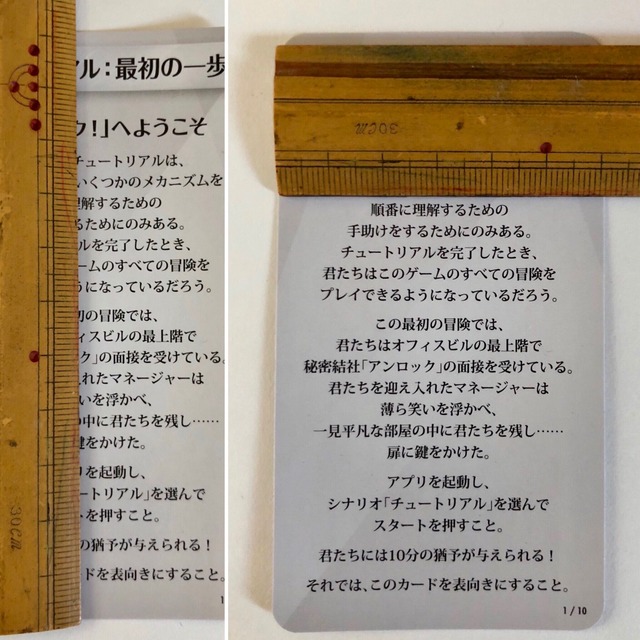 アル:最初の一歩
ウ!」へようこそ
チュートリアルは、
いくつかのメカニズムを
理解するための
るためにのみある。
ルを完了したとき、
ームのすべての冒険を
うになっているだろう。
初の冒険では、
ィスビルの最上階で
ック」の面接を受けている。
入れたマネージャーは
いを浮かべ、
の中に君たちを残し……
鍵をかけた。
リを起動し、
ートリアル」を選んで
トを押すこと。
の猶予が与えられる!
ドを表向きにすること。
1
30cm
30cm
順番に理解するための
手助けをするためにのみある。
チュートリアルを完了したとき、
君たちはこのゲームのすべての冒険を
プレイできるようになっているだろう。
この最初の冒険では、
君たちはオフィスビルの最上階で
秘密結社「アンロック」の面接を受けている。
君たちを迎え入れたマネージャーは
薄ら笑いを浮かべ、
一見平凡な部屋の中に君たちを残し……
扉に鍵をかけた。
アプリを起動し、
シナリオ「チュートリアル」を選んで
スタートを押すこと。
君たちには10分の猶予が与えられる!
それでは、このカードを表向きにすること。
1 / 10